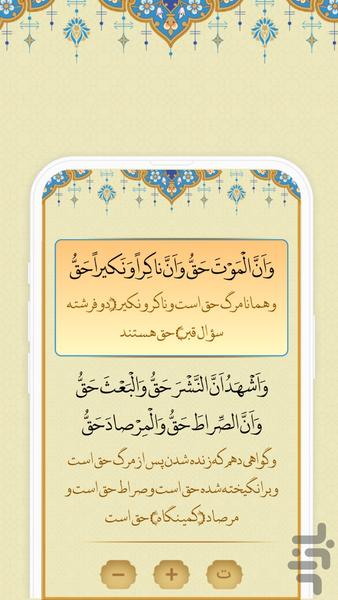 وَاَنَّ الْمَوْتَ حَقٌّ وَاَنَّ ناكِراً وَنَكيراً حَقٌّ
و همانا مرگ حق است و ناکر و نکیر (دو فرشته
سؤال قبر) حق هستند
وَاَشْهَدُ اَنَّ النَّشْرَ حَقٌّ وَالْبَعْثَ حَقٌّ
وَاَنَّ الصِّراطَ حَقٌّ وَالْمِرْصادَ حَقٌّ
و گواهی دهم که زنده شدن پس از مرگ حق است
و برانگیخته شده حق است و صراط حق است و
مرصاد (کمینگاه) حق است
− + ت
بازار